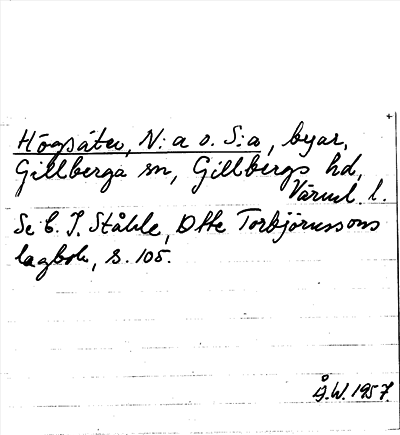 Högsäter, N:a o. S:a, byar,
Gillberga sn, Gillbergs hd,
Värml. l.
Se C. I. Ståhle, Otte Torbjörnssons
lagbok, s. 105.
Å.W. 1957.